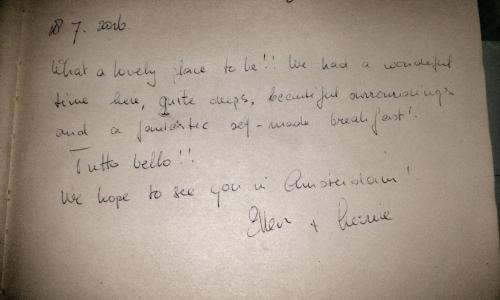 28.7.2016
What a lovely place to be!! We had a wonderful
time here, quite, beautiful surroundings
and a fantastic self-made breakfast!
Tutto bello!!
We hope to see you in Amsterdam!
Ellen +